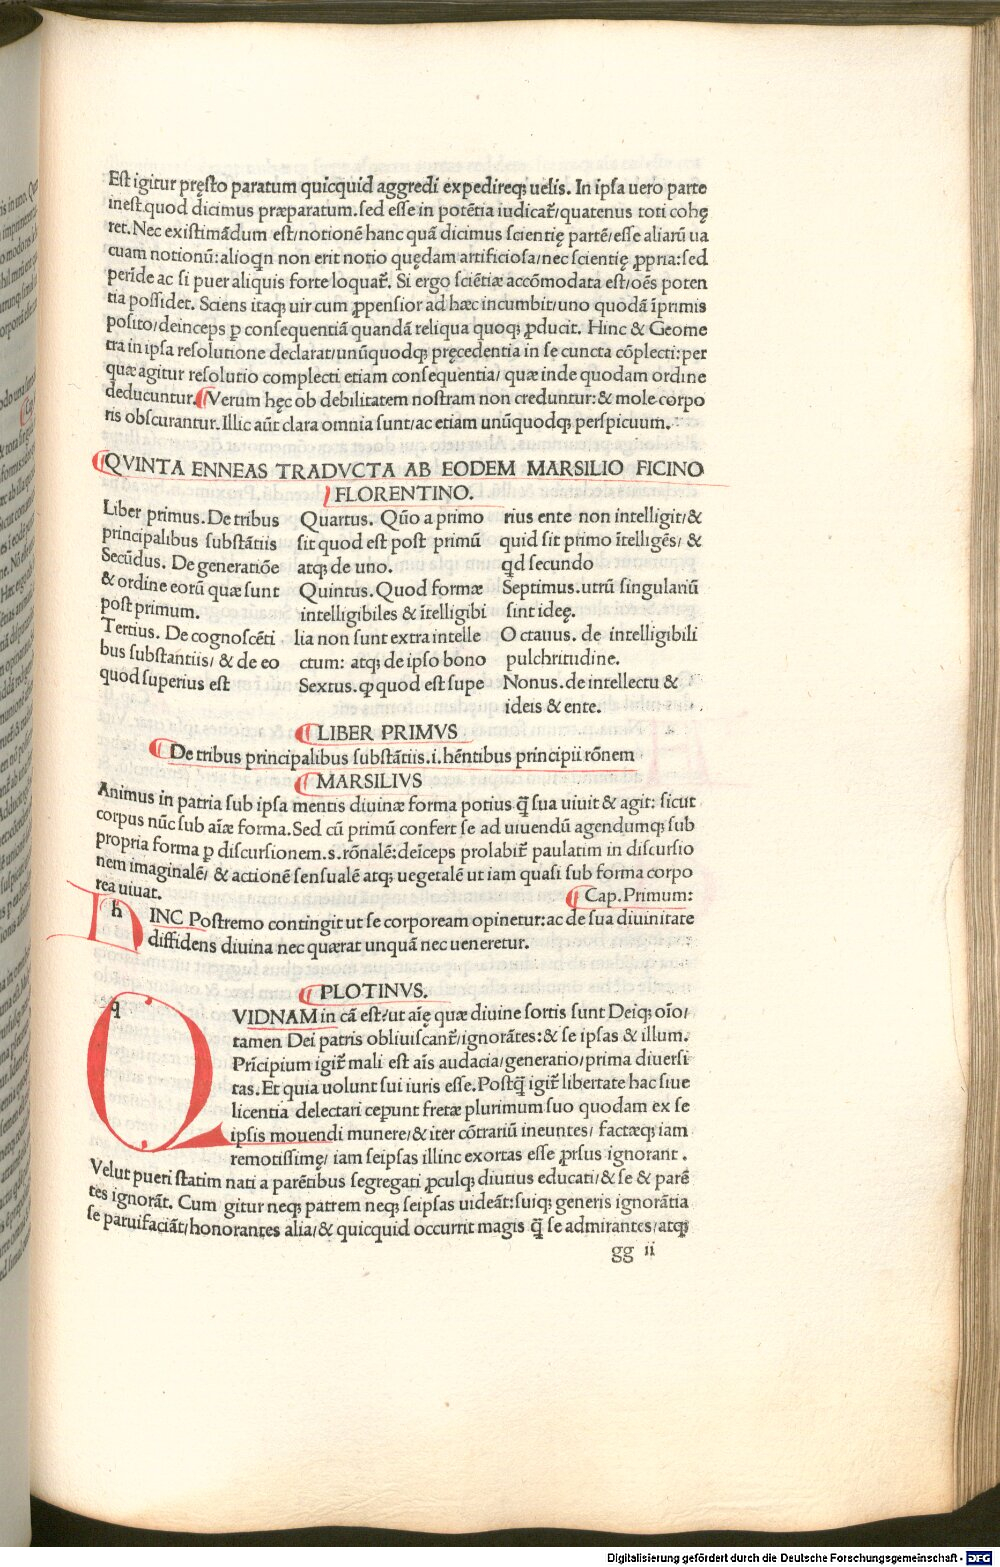 Est igitur pręsto paratum quicquid aggredi expedireq; uelis. In ipsa uero parte
inest quod dicimus præparatum. sed esse in potẽtia iudicat᷑/quatenus toti cohę
ret. Nec existimãdum est/notionẽ hanc quã dicimus scientię partẽ/esse aliarũ ua
cuam notionũ: alioqn non erit notio quędam artificiosa/nec scientię ꝓpria: sed
perĩde ac si puer aliquis forte loquat᷑. Si ergo sciẽtiæ accõmodata est/oẽs poten
tia possidet. Sciens itaq; uir cum ꝓpensior ad hæc incumbit/uno quodã ĩprimis
posito/deinceps ꝑ consequentiã quandã reliqua quoq; ꝓducit. Hinc & Geome
tra in ipsa resolutione declarat/unũquodq; pręcedentia in se cuncta cõplecti: per
quæ agitur resolutio complecti etiam consequentia/ quæ inde quodam ordine
deducuntur. Verum hęc ob debilitatem nostram non creduntur: & mole corpo
ris obscurantur. Illic aũt clara omnia sunt/ac etiam unũquodq; perspicuum.
QVINTA ENNEAS TRADVCTA AB EODEM MARSILIO FICINO
FLORENTINO.
Liber primus. De tribus
principalibus substãtiis
Secũdus. De generatiõe
& ordine eorũ quæ sunt
post primum.
Tertius. De cognoscẽti
bus substantiis/ & de eo
quod superius est
Quartus. Qũo a primo
sit quod est post primũ
atq; de uno.
Quintus. Quod formæ
intelligibiles & ĩtelligibi
lia non sunt extra intelle
ctum: atq; de ipso bono
Sextus. ꝙ quod est supe
rius ente non intelligit/&
quid sit primo ĩtelligẽs/ &
qd secundo
Septimus. utrũ singulariũ
sint ideę.
Octauus. de intelligibili
pulchritudine.
Nonus. de intellectu &
ideis & ente.
LIBER PRIMVS
De tribus principalibus substãtiis.i. hẽntibus principii rõnem
MARSILIVS
Animus in patria sub ipsa mentis diuinæ forma potius q̃ sua uiuit & agit: sicut
corpus nũc sub aĩæ forma. Sed cũ primũ confert se ad uiuendũ agendumq; sub
propria forma ꝑ discursionem.s. rõnalẽ: deĩceps prolabit᷑ paulatim in discursio
nem imaginalẽ/ & actionẽ sensualẽ atq; uegetalẽ ut iam quasi sub forma corpo
rea uiuat.
Cap. Primum:
h
HINC Postremo contingit ut se corpoream opinetur: ac de sua diuinitate
diffidens diuina nec quærat unquã nec ueneretur.
PLOTINVS.
q
QVIDNAM in cã est/ut aĩę quæ diuine sortis sunt Deiq; oĩo/
tamen Dei patris obliuiscant᷑/ignorãtes: & se ipsas & illum.
Prĩcipium igit᷑ mali est aĩs audacia/generatio/prima diuersi
tas. Et quia uolunt sui iuris esse. Postq̃ igit᷑ libertate hac siue
licentia delectari cepunt fretæ plurimum suo quodam ex se
ipsis mouendi munere/& iter cõtrariũ ineuntes/ factæq; iam
remotissimę/ iam seipsas illinc exortas esse ꝓrsus ignorant.
Velut pueri statim nati a parẽtibus segregati ꝓculq; diutius educati/& se & parẽ
tes ignorãt. Cum gitur neq; patrem neq; seipsas uideãt: suiq; generis ignorãtia
se paruifaciãt/honorantes alia/& quicquid occurrit magis q̃ se admirantes/atq;
gg ii
Digitalisierung gefördert durch die Deutsche Forschungsgemeinschaft - DFG